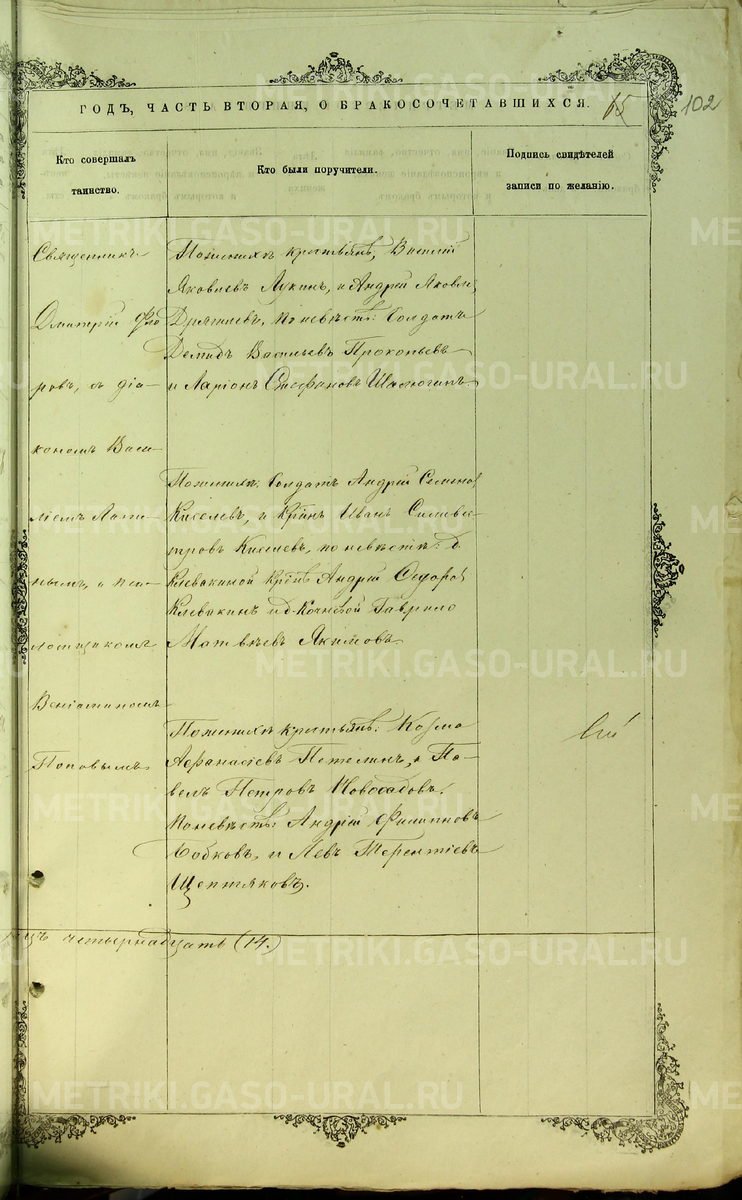 ГОДЪ, ЧАСТЬ ВТОРАЯ, О БРАКОСОЧЕТАВШИХСЯ.
65
102
Кто совершалъ
таинство.
Кто были поручители.
Подпись свидѣтелей
записи по желанію.
Священникъ
Дмитрій Фло
ровъ, съ діа-
кономъ Васи-
ліемъ
нымъ, и
Веніаминомъ
Поповымъ
По женихѣ крестьянъ, Василій
Яковлевъ Лукинъ, и Андрей Яковл:
по невѣстѣ: Солдатъ
Демидъ Васильевъ Прокопьевъ
и Ларіонъ Стефановъ
По женихѣ: Солдатъ Андрей Семенов
Киселевъ, и Крнъ Иванъ Сильвес-
тровъ Киселевъ, по невѣстѣ: д.
Клевакиной Андрей Ѳедоров
Клевакинъ и д. Кочневой Гаврило
Матвѣевъ Якимовъ.
По женихѣ крестьянъ: Козма
Афанасіевъ Петелинъ, и Па-
велъ Петровъ Новосадовъ.
По невѣстѣ: Андрей Филипповъ
Бобковъ, и Левъ Терентіевъ
Щептяковъ.
четырнадцать (14.)
METRIKI.GASO-URAL.RU